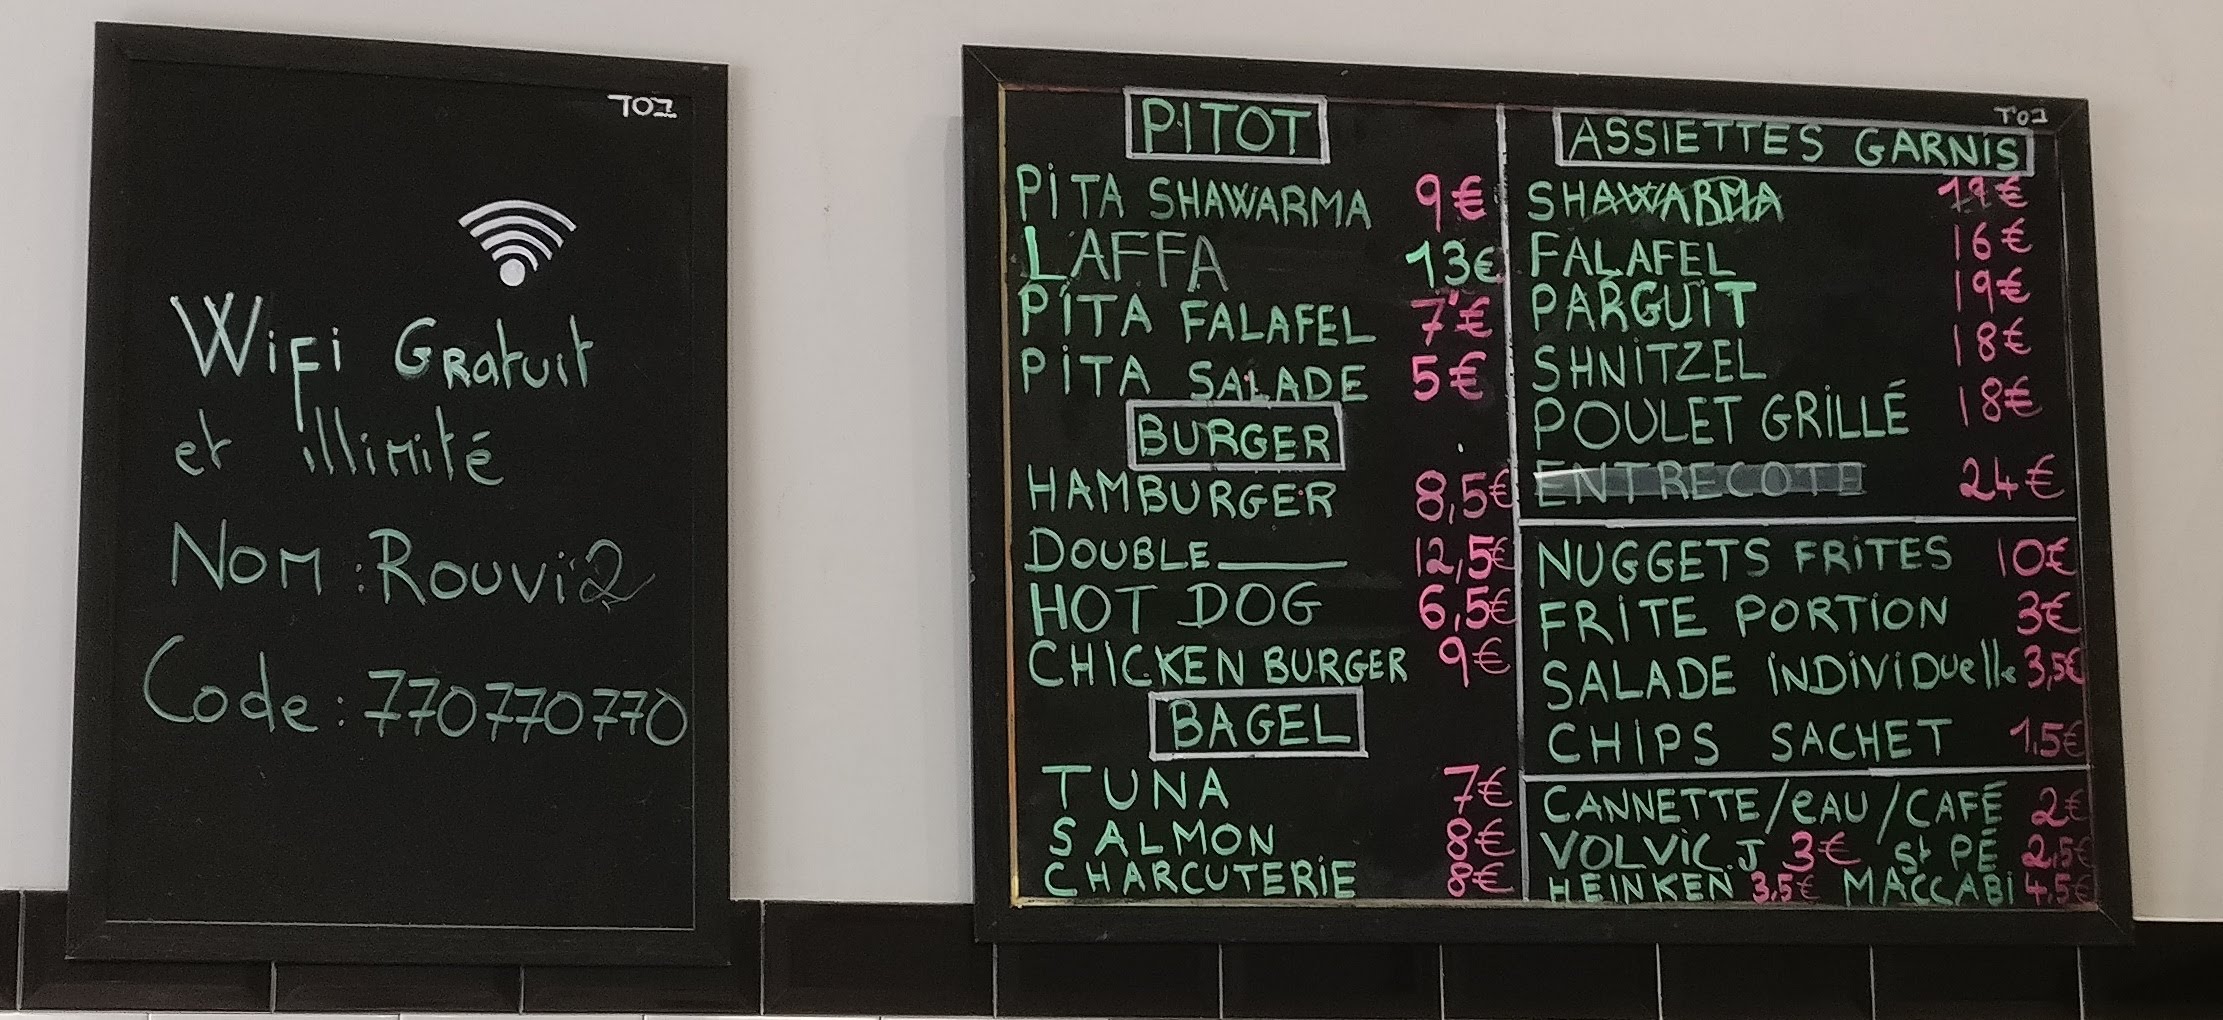 TO1
Wifi Gratuit
et illimité
Nom : Rouvi2
Code : 770770770
PITOT
PITA SHAWARMA 9€
LAFFA 13€
PITA FALAFEL 7€
PITA SALADE 5€
BURGER
HAMBURGER 8,5€
DOUBLE 12,5€
HOT DOG 6,5€
CHICKEN BURGER 9€
BAGEL
TUNA 7€
SALMON 8€
CHARCUTERIE 8€
TO1
ASSIETTES GARNIS
SHAWARMA
FALAFEL 16€
PARGUIT 19€
SHNITZEL 18€
POULET GRILLÉ 18€
ENTRECOTE 24€
NUGGETS FRITES 10€
FRITE PORTION 3€
SALADE INDIVIDUelle 3,5€
CHIPS SACHET 1,5€
CANNETTE/eAU/CAFÉ 2€
VOLVIC.J 3€ St PÉ 2,5€
HEINKEN 3,5€ MACCABI 4,5€